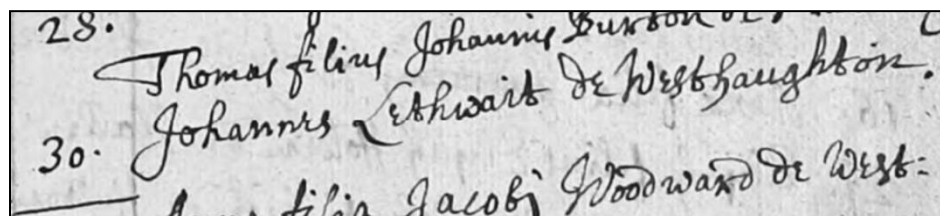 28.
Thomas filius Johannis Burton de
Johannes Lethwait de Westhaughton.
30.
filia Jacobi Woodward de West: